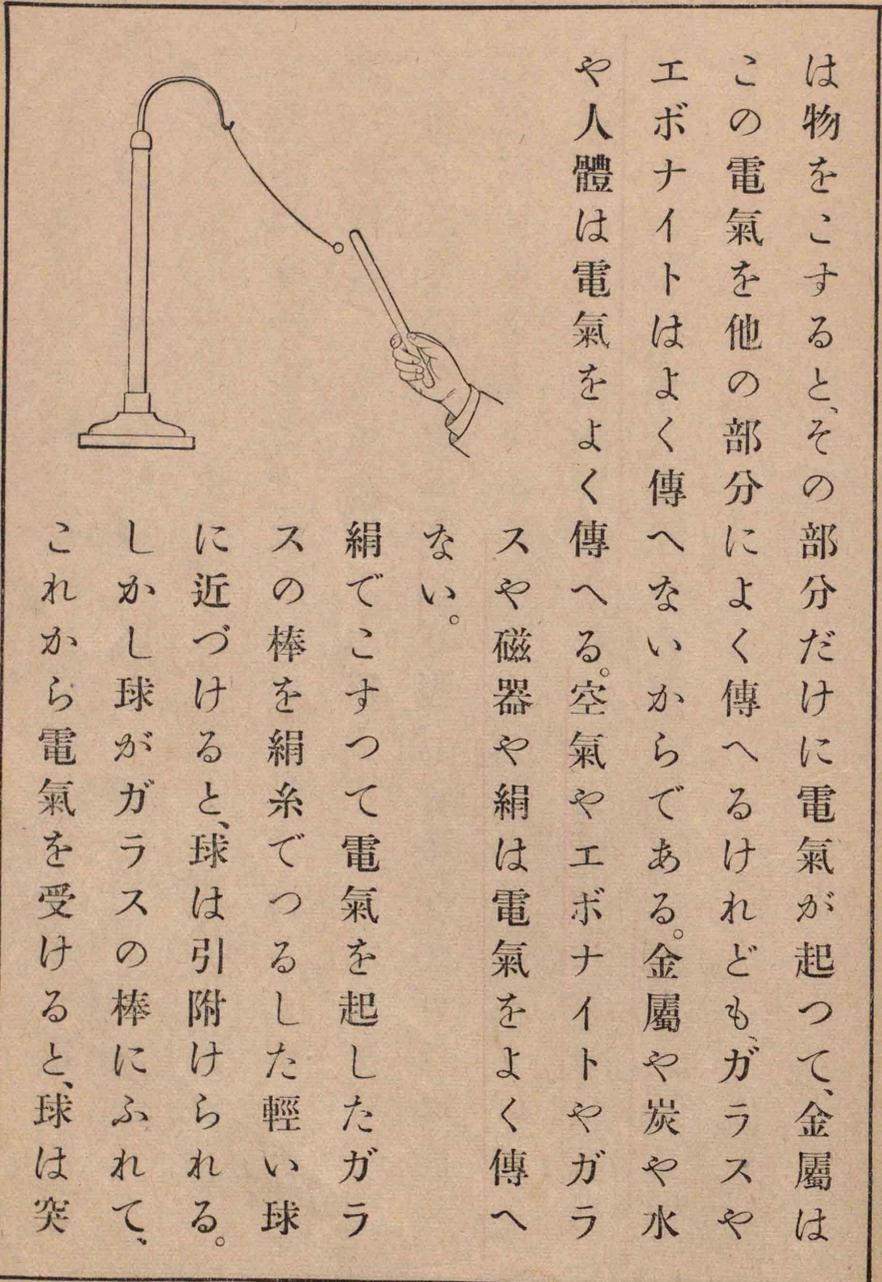 は物をこすると、その部分だけに電氣が起つて、金屬は
この電氣を他の部分によく傳へるけれども、ガラスや
エボナイトはよく傳へないからである。金屬や炭や水
や人體は電氣をよく傳へる。空氣やエボナイトやガラ
スや磁器や絹は電氣をよく傳へ
ない。
絹でこすつて電氣を起したガラ
スの棒を絹糸でつるした輕い球
に近づけると、球は引附けられる。
しかし球がガラスの棒にふれて、
これから電氣を受けると、球は突